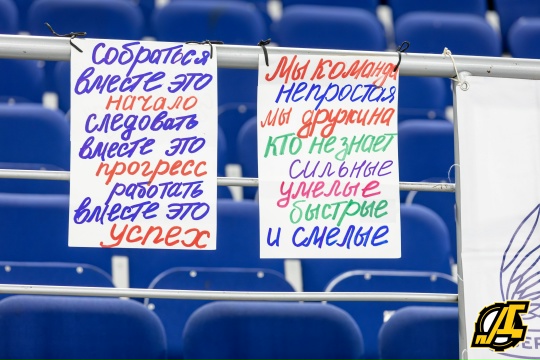 Собраться
вместе это
начало
следовать
вместе это
прогресс
работать
вместе это
успех
Мы команда
непростая
мы дружина
кто не знает
сильные
умелые
быстрые
и смелые